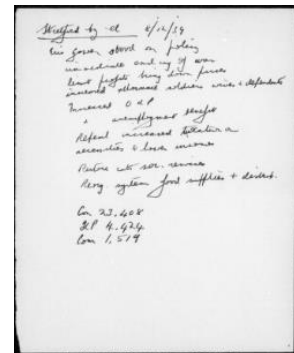 Stretford by-el 8/12/39
Eric Gower stood on policy
immediate ending of war
limit profits bring down prices
increased allowances soldiers wives & dependents
Increased O A P
" unemployment benefit
Repeal increased taxation on
necessities & lower incomes
Restore cuts soc. services
Reorg. system food supplies & distrib.
Con 23,408
ILP 4,424
Com 1,519